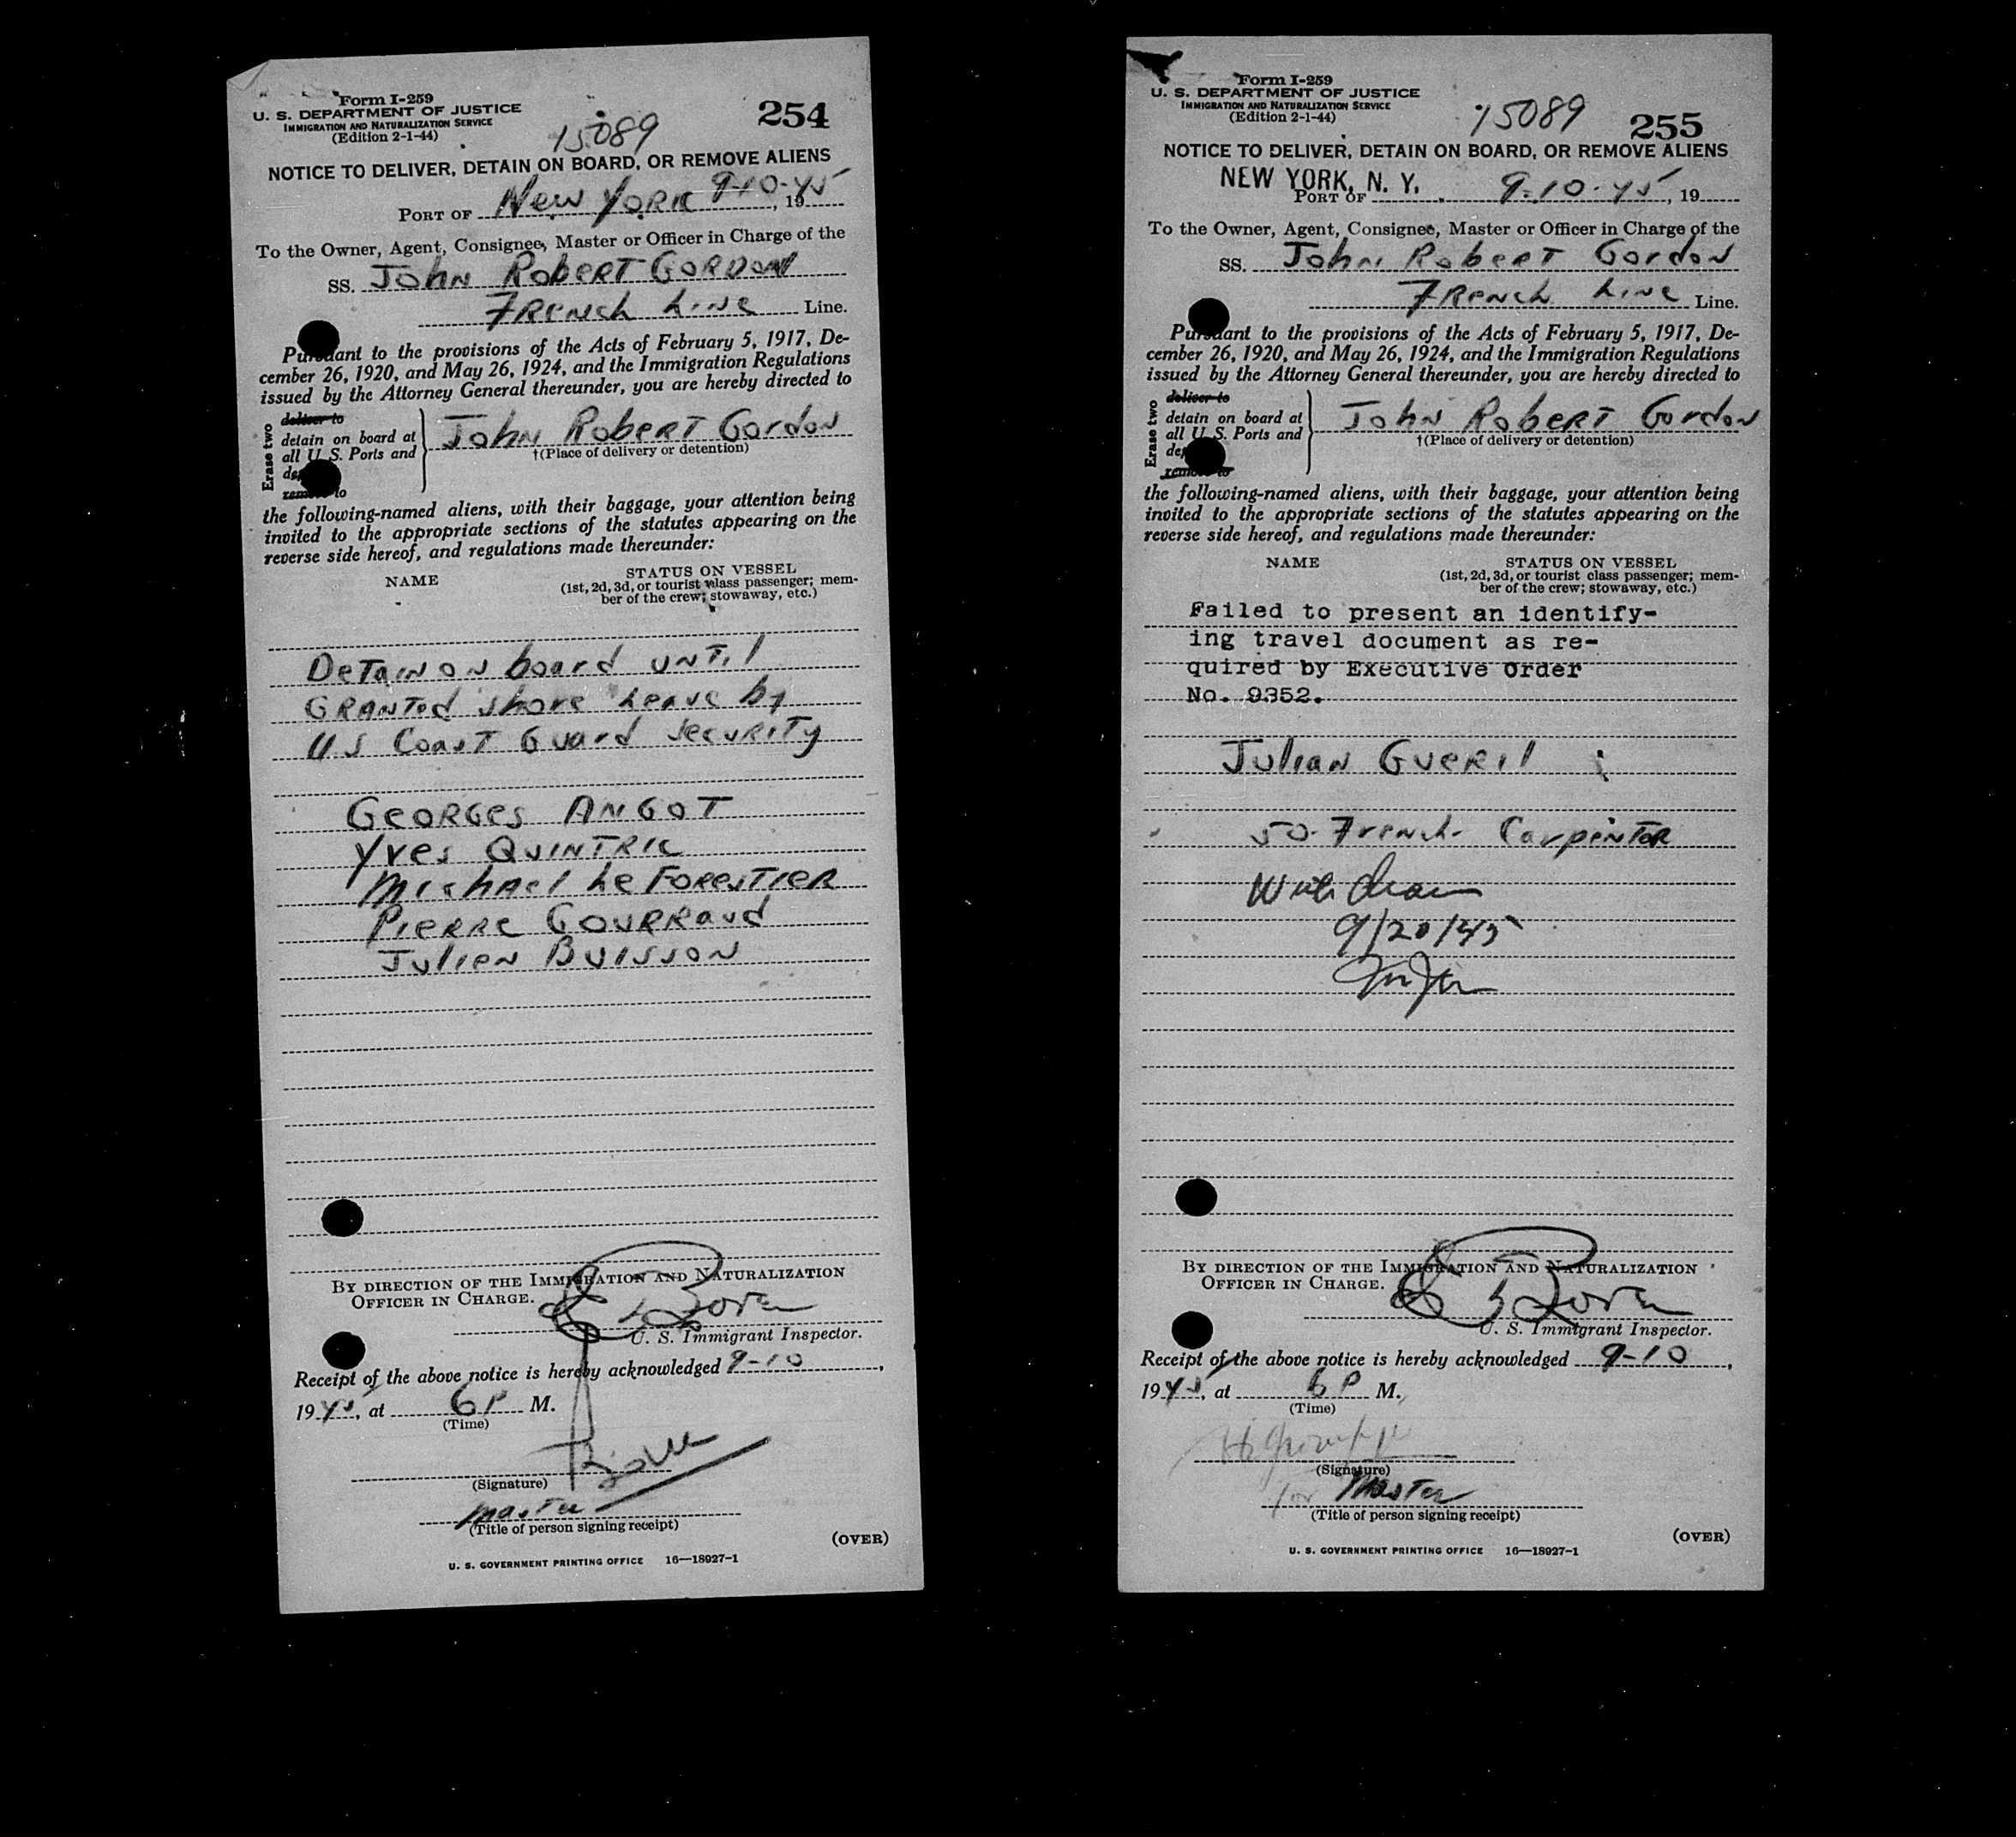 Form I-259
U. S. DEPARTMENT OF JUSTICE
IMMIGRATION AND NATURALIZATION SERVICE
(Edition 2-1-44)
15089
254
NOTICE TO DELIVER, DETAIN ON BOARD, OR REMOVE ALIENS
PORT OF New York 9-10-45, 19
To the Owner, Agent, Consignee, Master or Officer in Charge of the
SS. John Robert Gordon
French Line Line.
Pursuant to the provisions of the Acts of February 5, 1917, De-
cember 26, 1920, and May 26, 1924, and the Immigration Regulations
issued by the Attorney General thereunder, you are hereby directed to
Erase two
deliver to
detain on board at
all U. S. Ports and
remove to
John Robert Gordon
†(Place of delivery or detention)
the following-named aliens, with their baggage, your attention being
invited to the appropriate sections of the statutes appearing on the
reverse side hereof, and regulations made thereunder:
NAME
STATUS ON VESSEL
(1st, 2d, 3d, or tourist class passenger; mem-
ber of the crew; stowaway, etc.)
Detain on board until
Granted shore leave by
U.S Coast Guard Security
Georges Angot
Yves Quintric
Michael Le Forestier
Pierre Gourraud
Julien Buisson
BY DIRECTION OF THE IMMIGRATION AND NATURALIZATION
OFFICER IN CHARGE.
U. S. Immigrant Inspector.
Receipt of the above notice is hereby acknowledged 9-10,
1945, at 6 P M.
(Time)
(Signature)
Master
(Title of person signing receipt)
(OVER)
U. S. GOVERNMENT PRINTING OFFICE 16—18927-1
Form I-259
U. S. DEPARTMENT OF JUSTICE
IMMIGRATION AND NATURALIZATION SERVICE
(Edition 2-1-44)
15089
255
NOTICE TO DELIVER, DETAIN ON BOARD, OR REMOVE ALIENS
NEW YORK, N. Y.
PORT OF 9-10-45, 19
To the Owner, Agent, Consignee, Master or Officer in Charge of the
SS. John Robert Gordon
French Line Line.
Pursuant to the provisions of the Acts of February 5, 1917, De-
cember 26, 1920, and May 26, 1924, and the Immigration Regulations
issued by the Attorney General thereunder, you are hereby directed to
Erase two
deliver to
detain on board at
all U. S. Ports and
remove to
John Robert Gordon
†(Place of delivery or detention)
the following-named aliens, with their baggage, your attention being
invited to the appropriate sections of the statutes appearing on the
reverse side hereof, and regulations made thereunder:
NAME
STATUS ON VESSEL
(1st, 2d, 3d, or tourist class passenger; mem-
ber of the crew; stowaway, etc.)
Failed to present an identify-
ing travel document as re-
quired by Executive Order
No. 9352.
Julian Gueril
50-French-Carpenter
Withdrawn
9/20/45
BY DIRECTION OF THE IMMIGRATION AND NATURALIZATION
OFFICER IN CHARGE.
U. S. Immigrant Inspector.
Receipt of the above notice is hereby acknowledged 9-10,
1945, at 6 P M.
(Time)
(Signature)
for Master
(Title of person signing receipt)
(OVER)
U. S. GOVERNMENT PRINTING OFFICE 16—18927-1